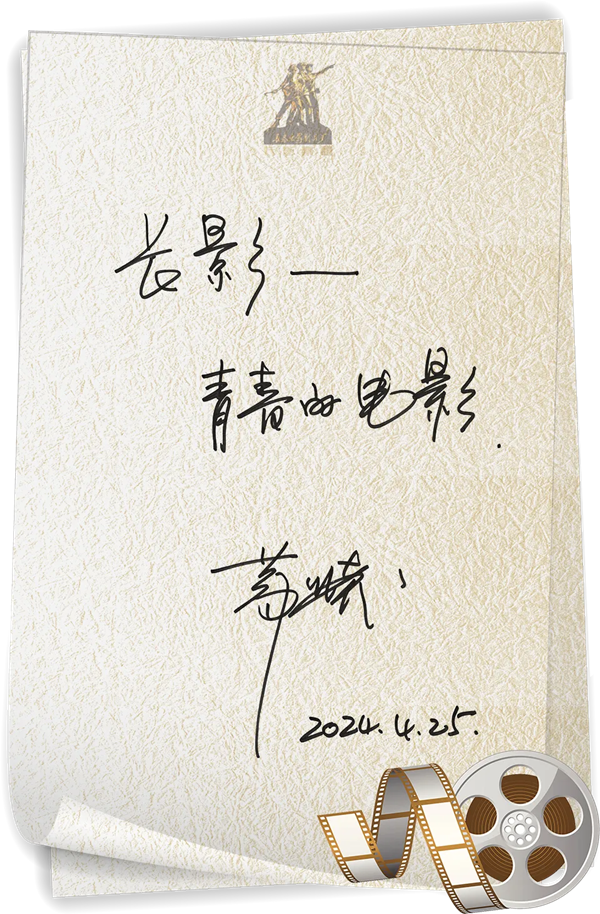 长影—
青春的电影.
2024.4.25.